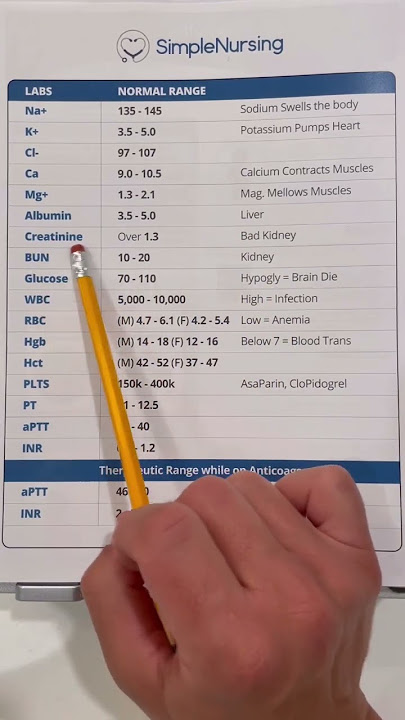 SimpleNursing
LABS NORMAL RANGE
Na+ 135 - 145 Sodium Swells the body
K+ 3.5 - 5.0 Potassium Pumps Heart
Cl- 97 - 107
Ca 9.0 - 10.5 Calcium Contracts Muscles
Mg+ 1.3 - 2.1 Mag. Mellows Muscles
Albumin 3.5 - 5.0 Liver
Creatinine Over 1.3 Bad Kidney
BUN 10 - 20 Kidney
Glucose 70 - 110 Hypogly = Brain Die
WBC 5,000 - 10,000 High = Infection
RBC (M) 4.7 - 6.1 (F) 4.2 - 5.4 Low = Anemia
Hgb (M) 14 - 18 (F) 12 - 16 Below 7 = Blood Trans
Hct (M) 42 - 52 (F) 37 - 47
PLTS 150k - 400k AsaParin, CloPidogrel
PT - 12.5
aPTT - 40
INR - 1.2
Range while on
aPTT 46
INR